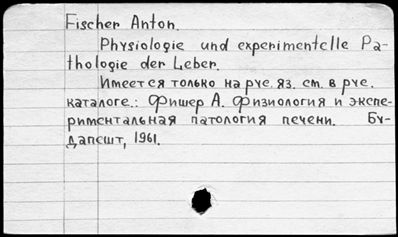 Fischer Anton.
Physiologie und experimentelle Pa-
thologie der Leber.
Имеется только на рус. яз. см. в рус.
каталоге.: Фишер А. Физиология и экспе-
риментальная патология печени. Бу-
дапешт, 1961.